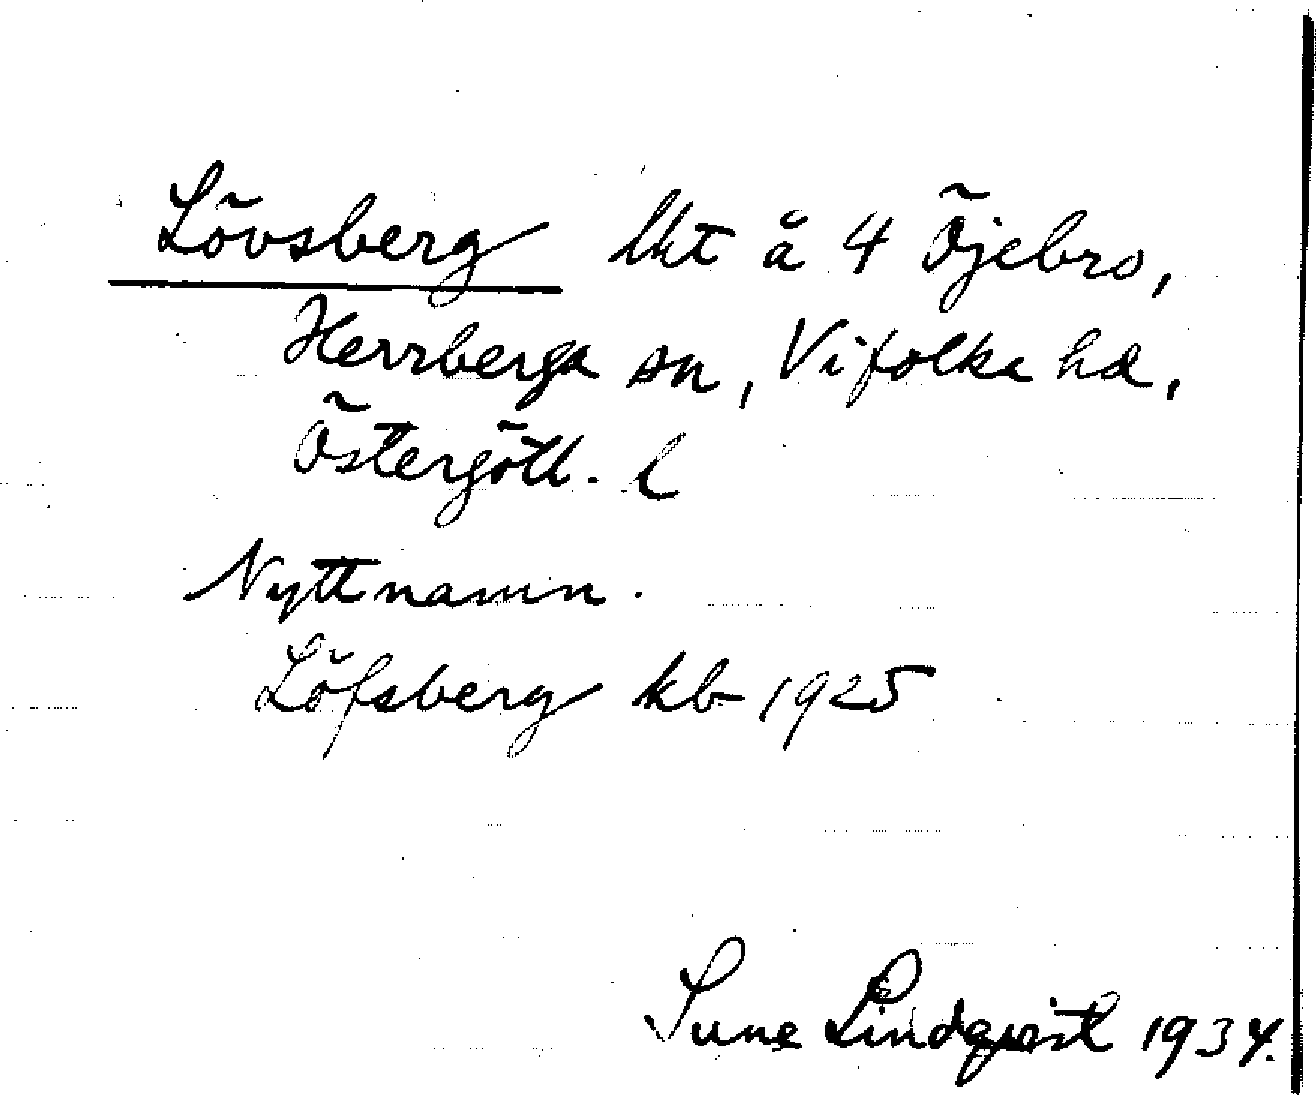 Lövsberg lht å 4 Öjebro,
Herrberga sn, Vifolka hd,
Östergötl. l
Nytt namn.
Löfsberg kb 1925
Sune Lindqvist 1934.